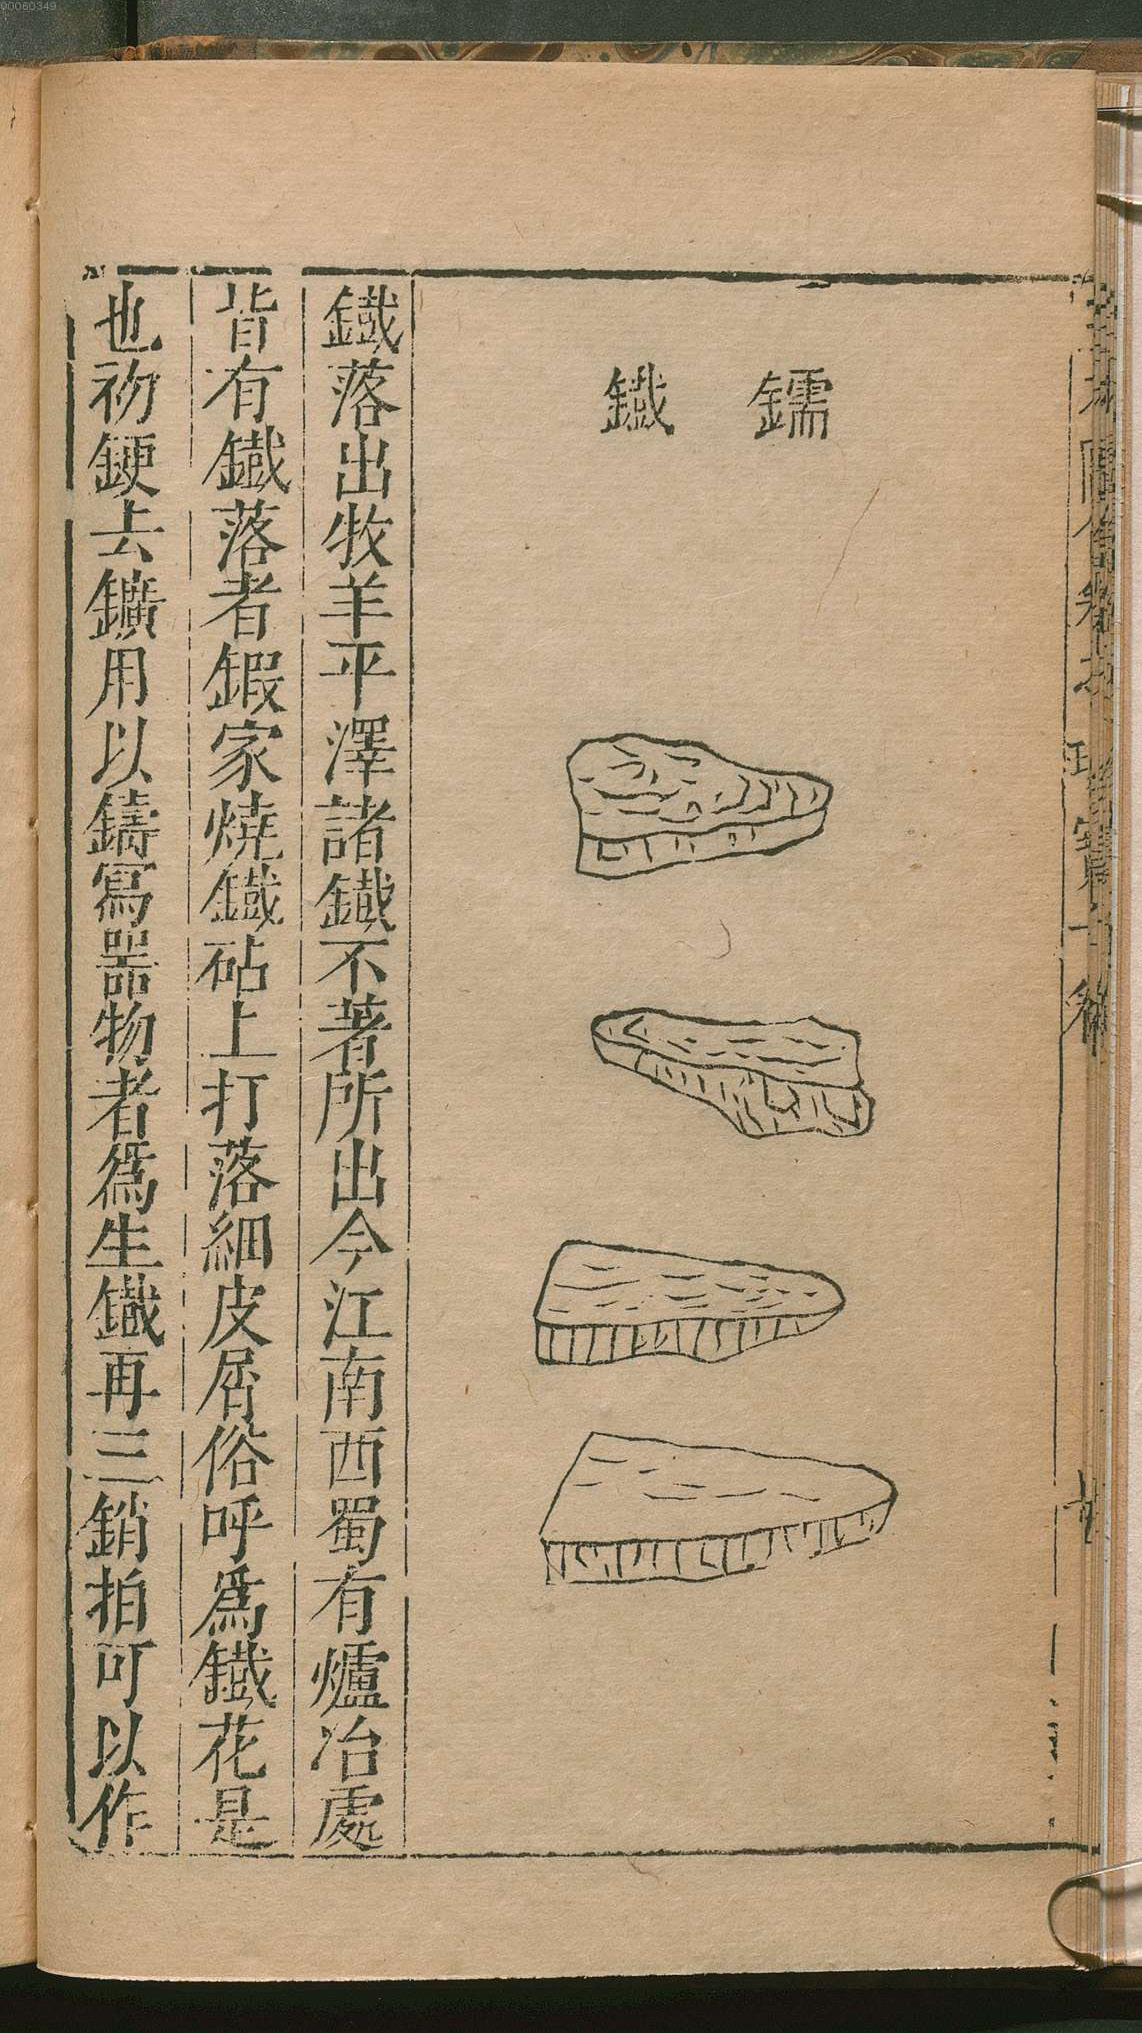 00060349
鑐 鐵
鐵落出牧羊平澤諸鐵不著所出今江南西蜀有爐冶處
皆有鐵落者鍜家燒鐵砧上打落細皮屑俗呼爲鐵花是
也初鋉去鑛用以鑄寫噐物者爲生鐵再三銷拍可以作